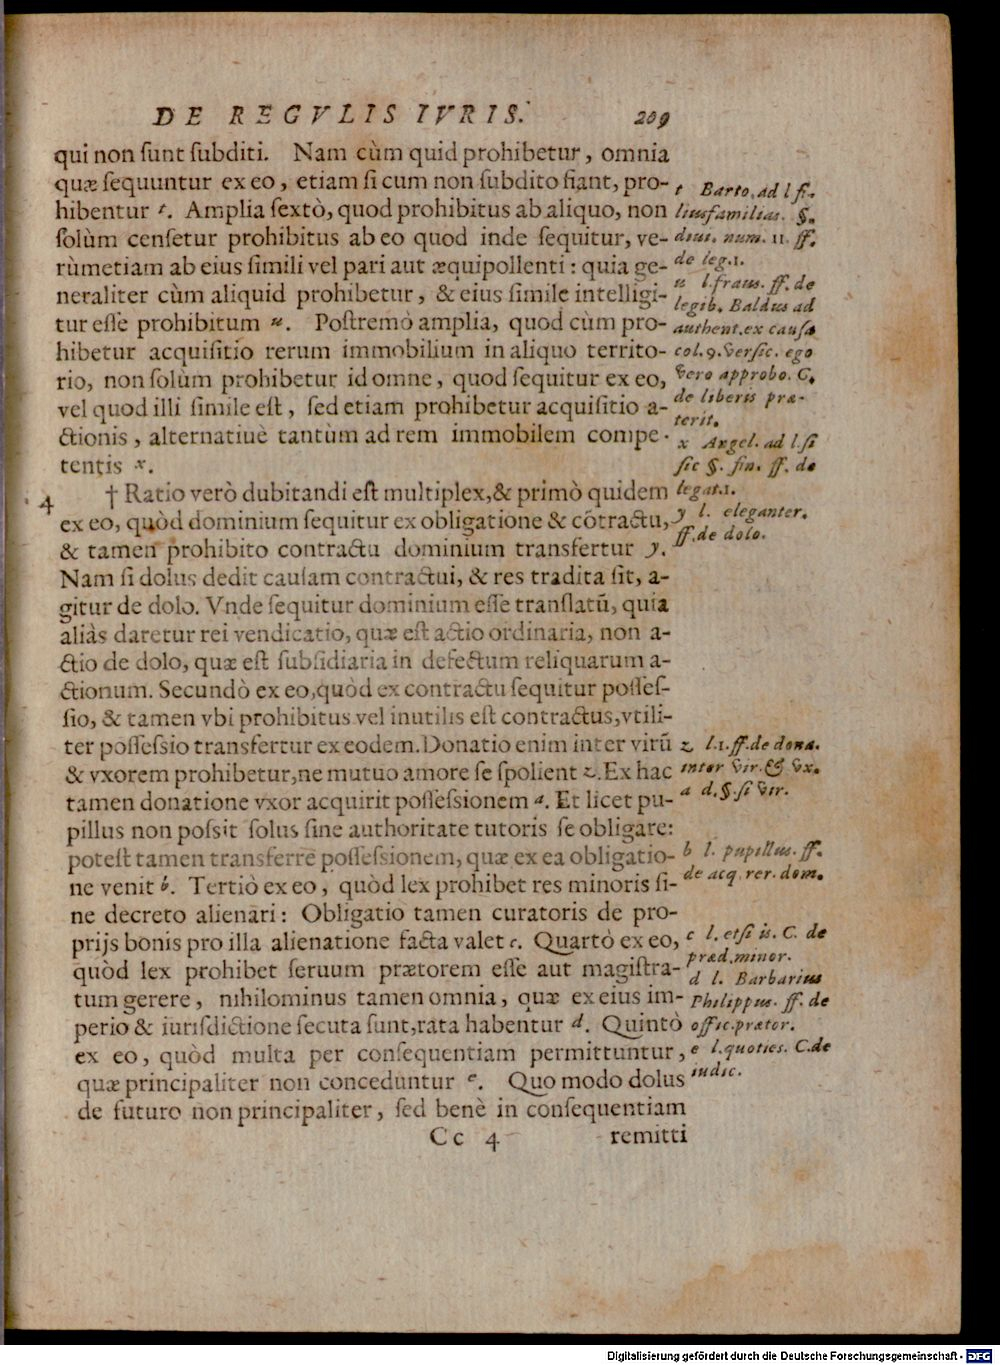 DE REGVLIS IVRIS. 209
qui non sunt subditi. Nam cùm quid prohibetur, omnia
quæ sequuntur ex eo, etiam si cum non subdito fiant, pro-
hibentur t. Amplia sextò, quod prohibitus ab aliquo, non
solùm censetur prohibitus ab eo quod inde sequitur, ve-
rùmetiam ab eius simili vel pari aut æquipollenti: quia ge-
neraliter cùm aliquid prohibetur, & eius simile intelligi-
tur esse prohibitum u. Postremò amplia, quod cùm pro-
hibetur acquisitio rerum immobilium in aliquo territo-
rio, non solùm prohibetur id omne, quod sequitur ex eo,
vel quod illi simile est, sed etiam prohibetur acquisitio a-
ctionis, alternatiuè tantùm ad rem immobilem compe-
tentis x.
4 † Ratio verò dubitandi est multiplex, & primò quidem
ex eo, quòd dominium sequitur ex obligatione & cõtractu,
& tamen prohibito contractu dominium transfertur y.
Nam si dolus dedit causam contractui, & res tradita sit, a-
gitur de dolo. Vnde sequitur dominium esse translatũ, quia
aliàs daretur rei vendicatio, quæ est actio ordinaria, non a-
ctio de dolo, quæ est subsidiaria in defectum reliquarum a-
ctionum. Secundò ex eo, quòd ex contractu sequitur posses-
sio, & tamen vbi prohibitus vel inutilis est contractus, vtili-
ter possessio transfertur ex eodem. Donatio enim inter virũ
& vxorem prohibetur, ne mutuo amore se spolient z. Ex hac
tamen donatione vxor acquirit possessionem a. Et licet pu-
pillus non possit solus sine authoritate tutoris se obligare:
potest tamen transferre possessionem, quæ ex ea obligatio-
ne venit b. Tertiò ex eo, quòd lex prohibet res minoris si-
ne decreto alienari: Obligatio tamen curatoris de pro-
prijs bonis pro illa alienatione facta valet c. Quartò ex eo,
quòd lex prohibet seruum prætorem esse aut magistra-
tum gerere, nihilominus tamen omnia, quæ ex eius im-
perio & iurisdictione secuta sunt, rata habentur d. Quintò
ex eo, quòd multa per consequentiam permittuntur,
quæ principaliter non conceduntur e. Quo modo dolus
de futuro non principaliter, sed benè in consequentiam
Cc 4 remitti
t Barto. ad l. fi-
liusfamilias. §.
diui. num. 11. ff.
de leg. 1.
u l. fraus. ff. de
legib. Baldus ad
authent. ex causa
col. 9. versic. ego
vero approbo. C.
de liberis præ-
terit.
x Angel. ad l. si
sic §. fin. ff. de
legat. 1.
y l. eleganter.
ff. de dolo.
z l. 1. ff. de dona.
inter vir. & vx.
a d. §. si vir.
b l. pupillus. ff.
de acq. rer. dom.
c l. etsi is. C. de
præd. minor.
d l. Barbarius
Philippus. ff. de
offic. prætor.
e l. quoties. C. de
iudic.
Digitalisierung gefördert durch die Deutsche Forschungsgemeinschaft - DFG